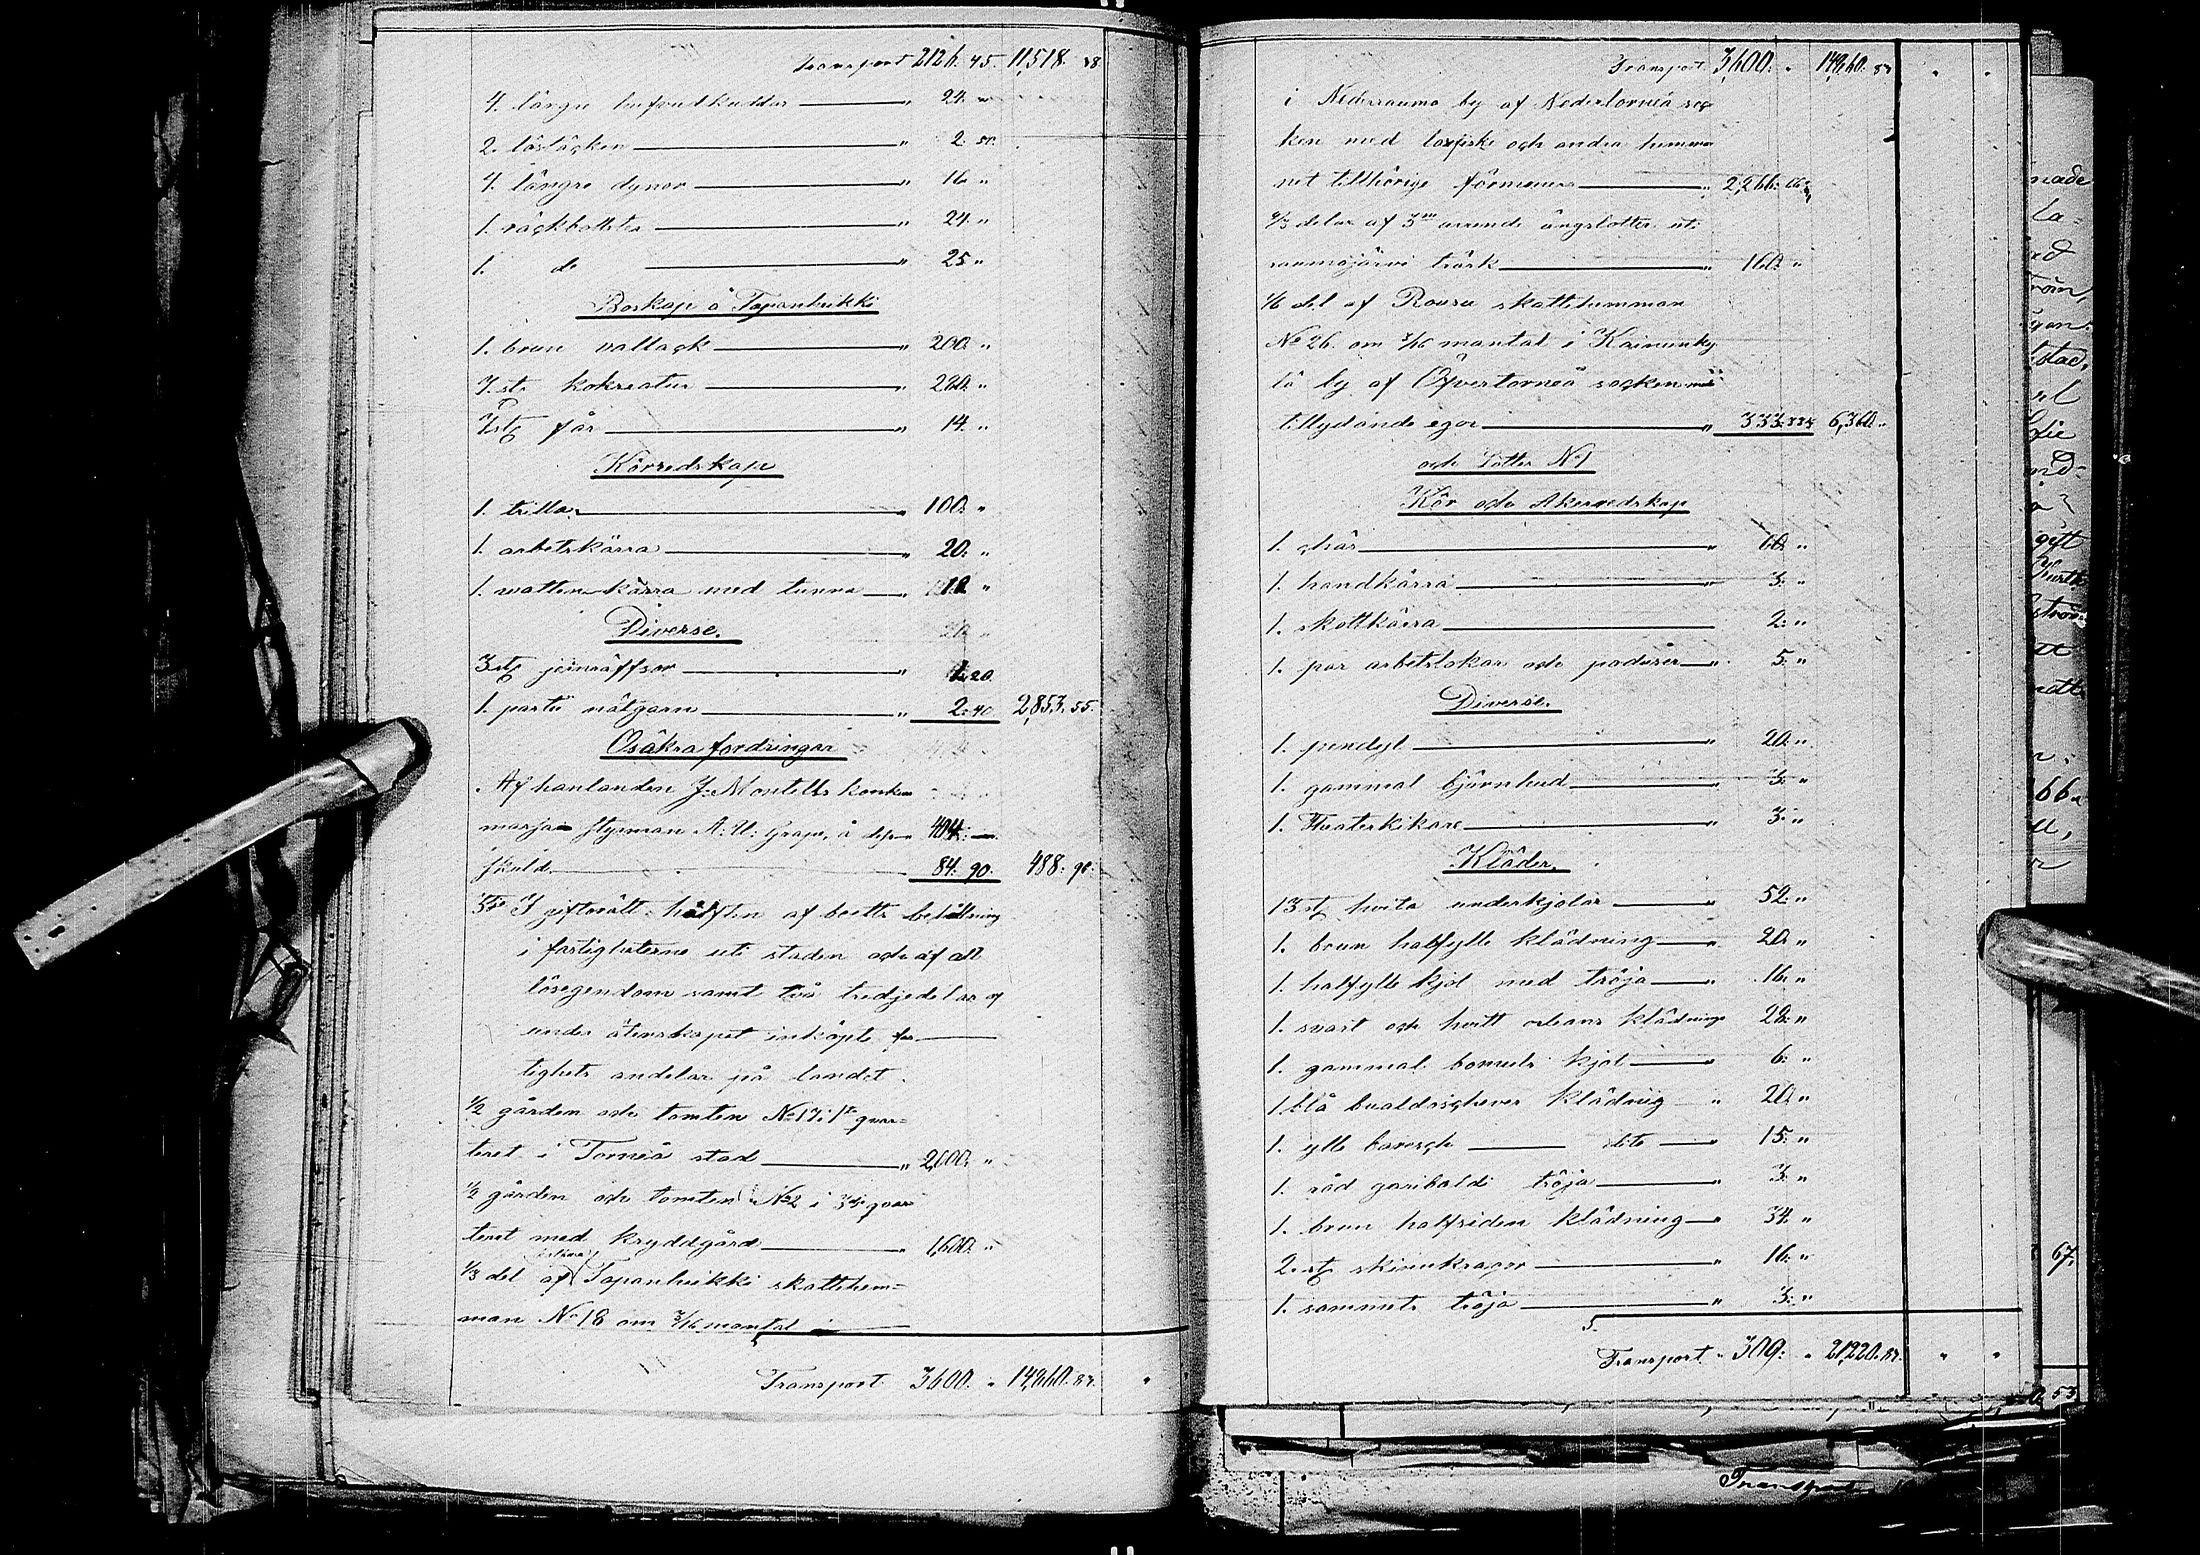 Transport 2126. 45. 11,518. 38
4. längre hufvudkuddar " 24. "
2. lästäcken " 2. 50.
4. längre dynor " 16 "
1. räckbolster " 24. "
1. do " 25 "
Boskap å Tapanheikki
1. brun vallack " 200. "
7 st. kokreatur " 280. "
7 stÿ får " 14. "
Körredskap
1. trilla " 100. "
1. arbetskärra " 20. "
1. vatten kärra med tunna " 10 "
Diverse.
3 stÿ " 1,20.
1. parti nätgarn " 2:40 2,853. 55.
Osäkra fordringar
Af handlanden J. Montells konkurs
massa Styrman A: U: Grape, å 404: —
skuld 84. 90. 488. 90.
I giftorätt hälften af boetts behållning
i fastigheterne uti staden och af all
lösegendom samt två tredjedelar af
under äktenskapet inköpte fas
tighets andelar på landet.
1/2 gården och tomten No 17 i 1a qvar=
teret i Torneå stad " 2,000. "
1/2 gården och tomten No 2 i 3dje qvar
teret med kryddgård " 1,600. "
1/3 del af Tapanheikki skattehem=
man No 18 om 3/16 mantal
Transport 3600. " 14,860. 83. "
Transport 3,600. " 14,860. 83 " "
i Nedervojakkala by af Nedertorneå soc
ken med laxfiske och andra hemma
net tillhörige förmoner " 2,266. 66
2/3 delar af 3ne ängslotter uti
träsk " 160. "
1/6 del af Rousu skattehemman
No 26. om 7/16 mantal i Kainunky
lä by af Öfvertorneå socken med
tillydande egor " 333:33 6,360. "
och Lotten No 1
Kör och Åkerredskap
1. chäs " 60. "
1. handkärra " 3: "
1. skottkärra 2: "
1. par arbetslokar och " 5. "
Diverse.
1. pendyl " 20. "
1. gammal björnhud " 3: "
1. Theaterkikare " 3: "
Kläder.
13 stÿ hvita underkjolar " 52: "
1. brun halfylle klädning " 20. "
1. halfylle kjol med tröja " 16. "
1. svart och hvitt orleans klädning 28: "
1. gammal bomuls kjol " 6: "
1. blå klädnig " 20. "
1. ylle baresch dito " 15. "
1. röd garibaldi tröja " 3: "
1. brun halfsiden klädning " 34. "
2. stÿ skinnkragor " 16: "
1. sammets tröja " 3: "
Transport " 309: " 21,220. 83. " "
nade
la-
67.
53
Transport